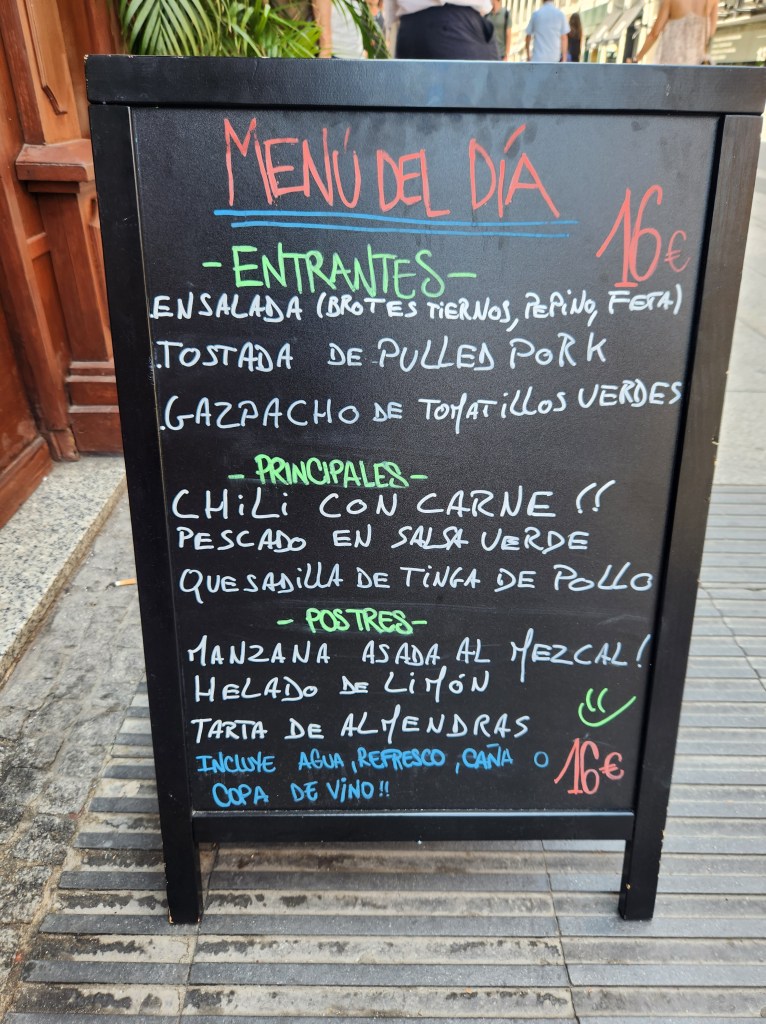 MENÚ DEL DÍA
16€
-ENTRANTES-
.ENSALADA (BROTES TIERNOS, PEPINO, FETA)
.TOSTADA DE PULLED PORK
.GAZPACHO DE TOMATILLOS VERDES
-PRINCIPALES-
CHILI CON CARNE !!
PESCADO EN SALSA VERDE
QUESADILLA DE TINGA DE POLLO
-POSTRES-
MANZANA ASADA AL MEZCAL!
HELADO DE LIMÓN
TARTA DE ALMENDRAS
INCLUYE AGUA, REFRESCO, CAÑA O
COPA DE VINO!!
16€